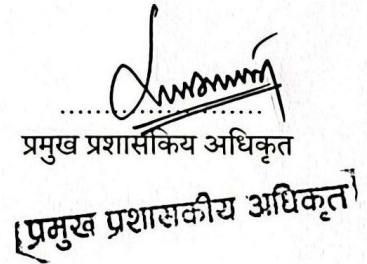 ....................
प्रमुख प्रशासकिय अधिकृत
(प्रमुख प्रशासकीय अधिकृत)